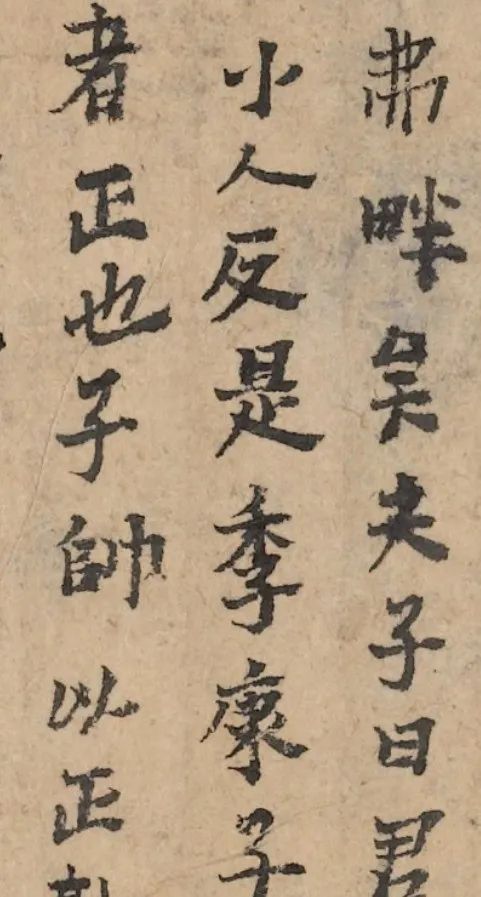 弗畔矣夫子曰君
小人反是季康子
者正也子帥以正